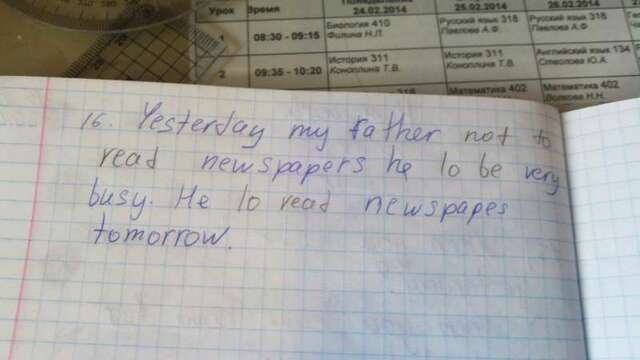 Понедельник
24.02.2014
25.02.2014
26.02.2014
Урок Время
1 08:30 - 09:15 Биология 410 Русский язык 318 Русский язык 318
Филина Н.Л. Павлова А.Ф. Павлова А.Ф
2 09:35 - 10:20 История 311 История 311 Английский язык 134
Коноплина Т.В. Коноплина Т.В. Стволова Ю.А.
Математика 402 Математика 402
Волкова Н.Н.
16. Yesterday my father not to
read newspapers he to be very
busy. He to read newspapes
tomorrow.